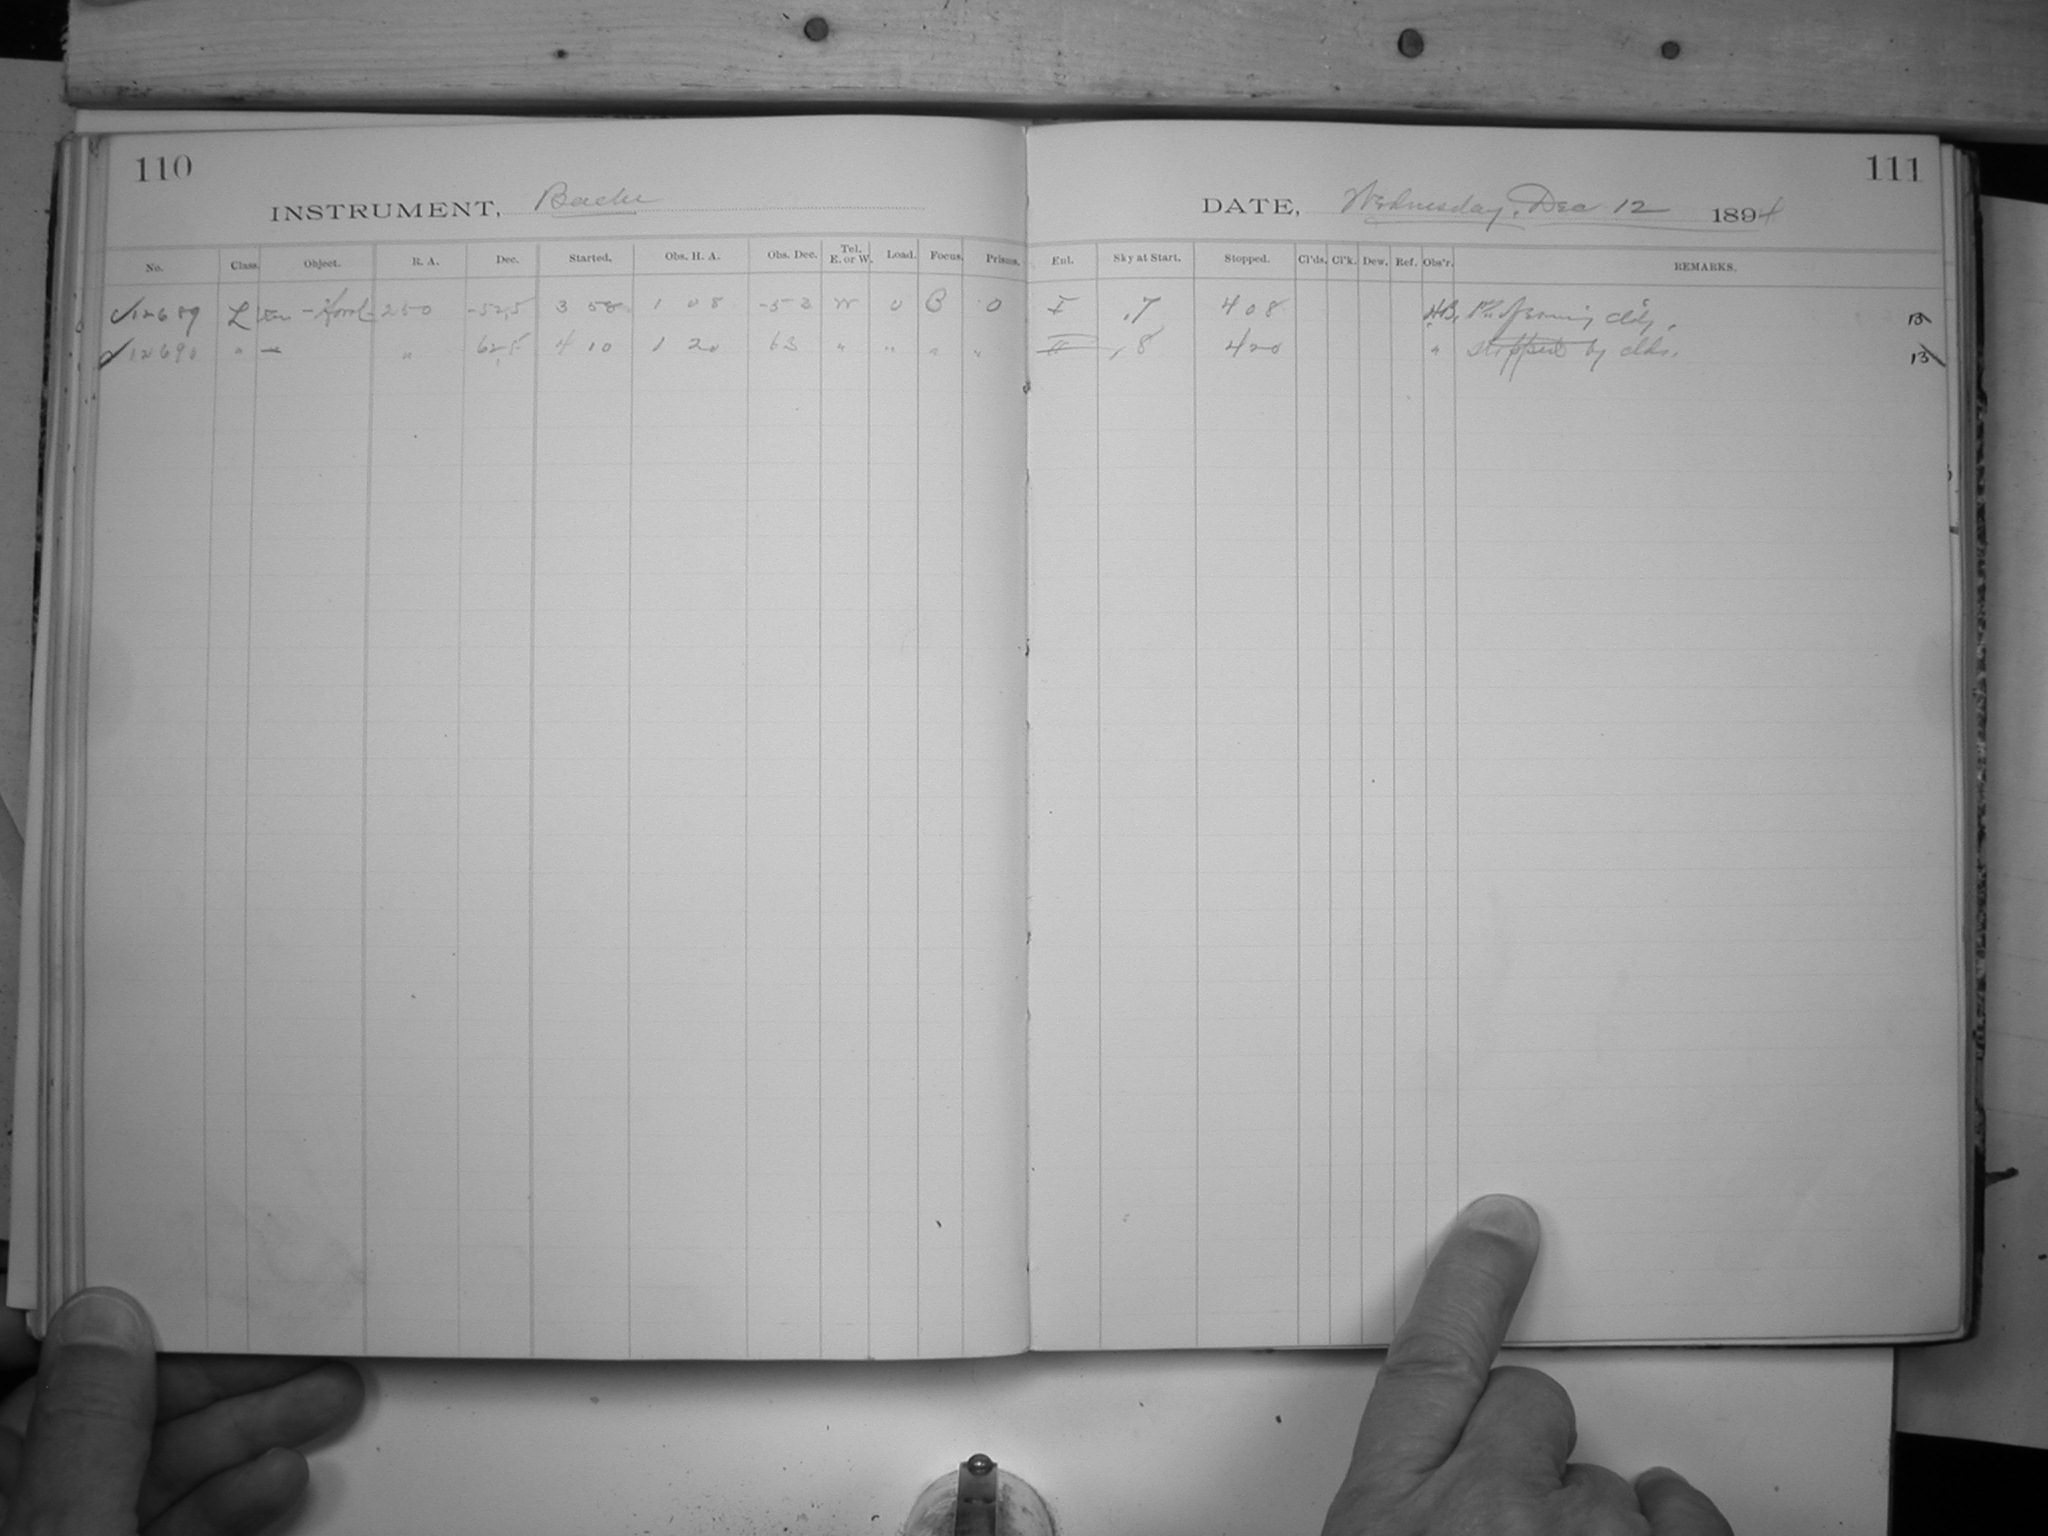 110
INSTRUMENT, Bache
No. Class. Object. R. A. Dec. Started. Obs. H. A. Obs. Dec. Tel. E. or W. Load. Focus. Prisms.
✓12689 L 250 -52,5 3 58 1 08 -53 W 0 B 0
✓12690 " — " 62,5 4 10 1 20 63 " " " "
111
DATE, Wednesday, Dec 12 1894
Ent. Sky at Start. Stopped. Cl'ds. Cl'k. Dew. Ref. Obs'r. REMARKS.
I ,7 4 08 cldy. 13
II ,8 4 20 " stopped by clds. 13